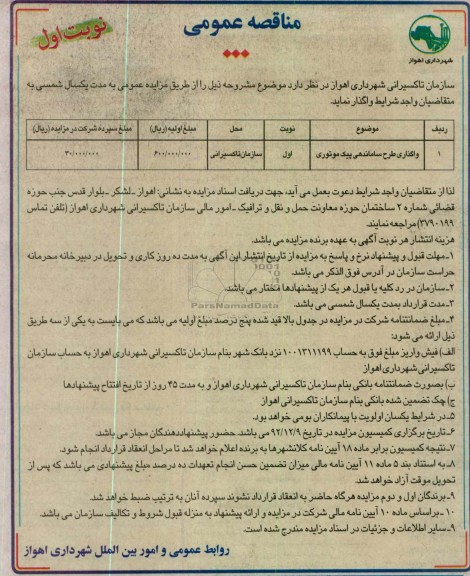 مناقصه عمومی
نوبت اول
شهرداری اهواز
سازمان تاکسیرانی شهرداری اهواز در نظر دارد موضوع مشروحه ذیل را از طریق مزایده عمومی به مدت یکسال شمسی به
متقاضیان واجد شرایط واگذار نماید.
ردیف موضوع نوبت محل مبلغ اولیه (ریال) مبلغ سپرده شرکت در مزایده (ریال)
۱ واگذاری طرح ساماندهی پیک موتوری اول سازمان تاکسیرانی ۶۰۰/۰۰۰/۰۰۰ ۳۰/۰۰۰/۰۰۰
لذا از متقاضیان واجد شرایط دعوت بعمل می آید، جهت دریافت اسناد مزایده به نشانی: اهواز ـ لشکر ـ بلوار قدس جنب حوزه
قضائی شماره ۲ ساختمان حوزه معاونت حمل و نقل و ترافیک ـ امور مالی سازمان تاکسیرانی شهرداری اهواز (تلفن تماس
۳۷۹۰۱۹۹) مراجعه نمایند.
هزینه انتشار هر نوبت آگهی به عهده برنده مزایده می باشد.
۱ـ مهلت قبول و پیشنهاد نرخ و پاسخ به مزایده از تاریخ انتشار این آگهی به مدت ده روز کاری و تحویل در دبیرخانه محرمانه
حراست سازمان در آدرس فوق الذکر می باشد.
۲ـ سازمان در رد کلیه یا قبول هر یک از پیشنهادها مختار می باشد.
۳ـ مدت قرارداد بمدت یکسال شمسی می باشد.
۴ـ مبلغ ضمانتنامه شرکت در مزایده در جدول بالا قید شده پنج درصد مبلغ اولیه می باشد که می بایست به یکی از سه طریق
ذیل ارائه می شود:
الف) فیش واریز مبلغ فوق به حساب ۱۰۰۱۳۱۱۱۹۹ نزد بانک شهر بنام سازمان تاکسیرانی شهرداری اهواز به حساب سازمان
تاکسیرانی شهرداری اهواز
ب) بصورت ضمانتنامه بانکی بنام سازمان تاکسیرانی شهرداری اهواز و به مدت ۴۵ روز از تاریخ افتتاح پیشنهادها
ج) چک تضمین شده بانکی بنام سازمان تاکسیرانی اهواز
۵ـ در شرایط یکسان اولویت با پیمانکاران بومی خواهد بود.
۶ـ تاریخ برگزاری کمیسیون مزایده در تاریخ ۹۲/۱۲/۹ می باشد. حضور پیشنهاددهندگان مجاز می باشد.
۷ـ نتیجه کمیسیون برابر ماده ۱۸ آیین نامه کلانشهرها به برنده اعلام خواهد شد تا مراحل انعقاد قرارداد انجام شود.
۸ـ به استناد بند ۵ ماده ۱۱ آیین نامه مالی میزان تضمین حسن انجام تعهدات ده درصد مبلغ پیشنهادی می باشد که پس از
تحویل موقت آزاد خواهد شد.
۹ـ برندگان اول و دوم مزایده هرگاه حاضر به انعقاد قرارداد نشوند سپرده آنان به ترتیب ضبط خواهد شد.
۱۰ـ براساس ماده ۱۰ آیین نامه مالی شرکت در مزایده و ارائه پیشنهاد به منزله قبول شروط و تکالیف سازمان می باشد.
۹ـ سایر اطلاعات و جزئیات در اسناد مزایده مندرج شده است.
روابط عمومی و امور بین الملل شهرداری اهواز
ParsNamadData